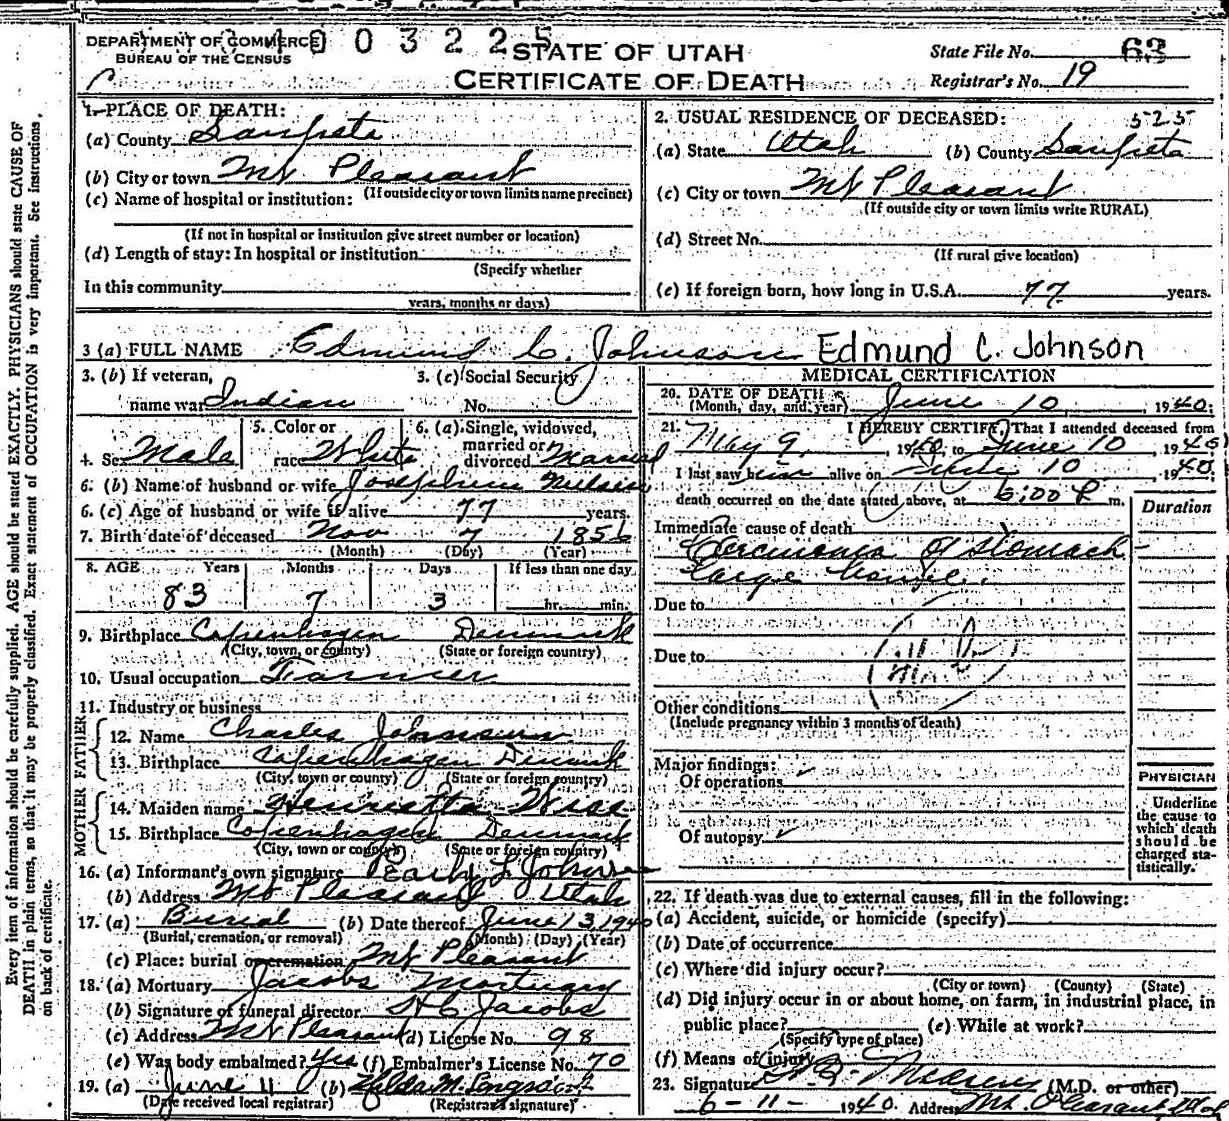 DEPARTMENT OF COMMERCE
BUREAU OF THE CENSUS
0 0 3 2 2 5
STATE OF UTAH
CERTIFICATE OF DEATH
State File No. 63
Registrar's No. 19
1. PLACE OF DEATH:
(a) County Sanpete
(b) City or town Mt Pleasant
(If outside city or town limits name precinct)
(c) Name of hospital or institution:
(If not in hospital or institution give street number or location)
(d) Length of stay: In hospital or institution
(Specify whether
In this community
years, months or days)
2. USUAL RESIDENCE OF DECEASED: 525
(a) State Utah (b) County Sanpete
(c) City or town Mt Pleasant
(If outside city or town limits write RURAL)
(d) Street No.
(If rural give location)
(e) If foreign born, how long in U.S.A. 77 years.
3 (a) FULL NAME Edmund C. Johnson Edmund C. Johnson
3. (b) If veteran, name war Indian
3. (c) Social Security No.
4. Sex Male
5. Color or race White
6. (a) Single, widowed, married or divorced Married
6. (b) Name of husband or wife Josephine
6. (c) Age of husband or wife if alive 77 years.
7. Birth date of deceased Nov 7 1856
(Month) (Day) (Year)
8. AGE Years Months Days If less than one day
83 7 3 hr. min.
9. Birthplace Copenhagen Denmark
(City, town, or county) (State or foreign country)
10. Usual occupation Farmer
11. Industry or business
FATHER
12. Name Charles Johnson
13. Birthplace Copenhagen Denmark
(City, town or county) (State or foreign country)
MOTHER
14. Maiden name Henrietta Wise
15. Birthplace Copenhagen Denmark
(City, town or county) (State or foreign country)
16. (a) Informant's own signature Pearl L Johnson
(b) Address Mt Pleasant Utah
17. (a) Burial (b) Date thereof June 13, 1940
(Burial, cremation, or removal) (Month) (Day) (Year)
(c) Place: burial or cremation Mt Pleasant
18. (a) Mortuary Jacobs Mortuary
(b) Signature of funeral director H C Jacobs
(c) Address Mt Pleasant (d) License No. 98
(e) Was body embalmed? Yes (f) Embalmer's License No. 70
19. (a) June 11 (b) Hilda M.
(Date received local registrar) (Registrar's signature)
MEDICAL CERTIFICATION
20. DATE OF DEATH
(Month, day, and year) June 10, 1940.
21. I HEREBY CERTIFY, That I attended deceased from
May 9, 1940, to June 10 1940
I last saw him alive on June 10, 1940.
death occurred on the date stated above, at 6:00 P m.
Duration
Immediate cause of death
Carcinoma of stomach
Large
Due to
Due to
Other conditions
(Include pregnancy within 3 months of death)
Major findings:
Of operations
Of autopsy
PHYSICIAN
Underline
the cause to
which death
should be
charged sta-
tistically.
22. If death was due to external causes, fill in the following:
(a) Accident, suicide, or homicide (specify)
(b) Date of occurrence
(c) Where did injury occur?
(City or town) (County) (State)
(d) Did injury occur in or about home, on farm, in industrial place, in
public place? (e) While at work?
(Specify type of place)
(f) Means of injury
23. Signature (M.D. or other)
6-11-1940. Address Mt. Pleasant, Utah
Every item of information should be carefully supplied. AGE should be stated EXACTLY. PHYSICIANS should state CAUSE OF
DEATH in plain terms, so that it may be properly classified. Exact statement of OCCUPATION is very important. See instructions
on back of certificate.